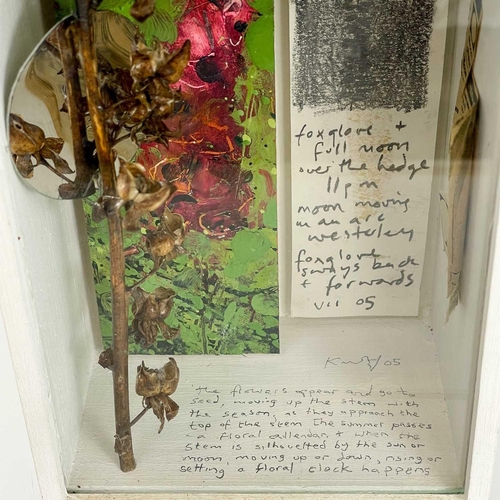 foxglove +
full moon
over the hedge
11pm
moon moving
in an arc
westerley
foxglove
sways back
+ forwards
VII 05
05
the flowers appear and go to
seed, moving up the stem with
the season, as they approach the
top of the stem the summer passes
- a floral calendar, + when the
stem is silhouetted by the sun or
moon, moving up or down, rising or
setting a floral clock happens